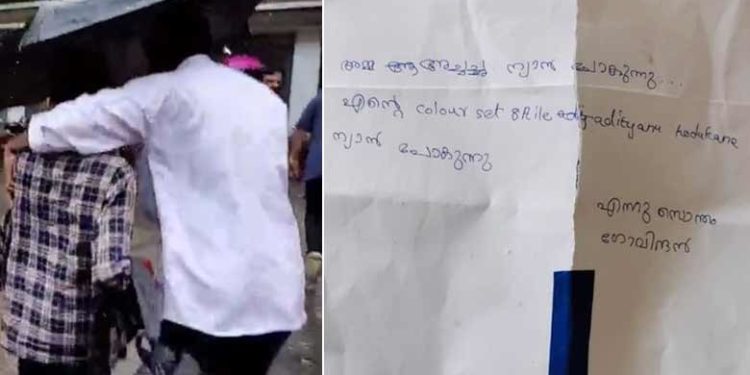 അമ്മ അച്ചച്ച ന്യാൻ പോകുന്നു...
എന്റെ colour set adityanu kodukane
ന്യാൻ പോകുന്നു
എന്നു സൊന്തം
ഗോവിന്ദൻ